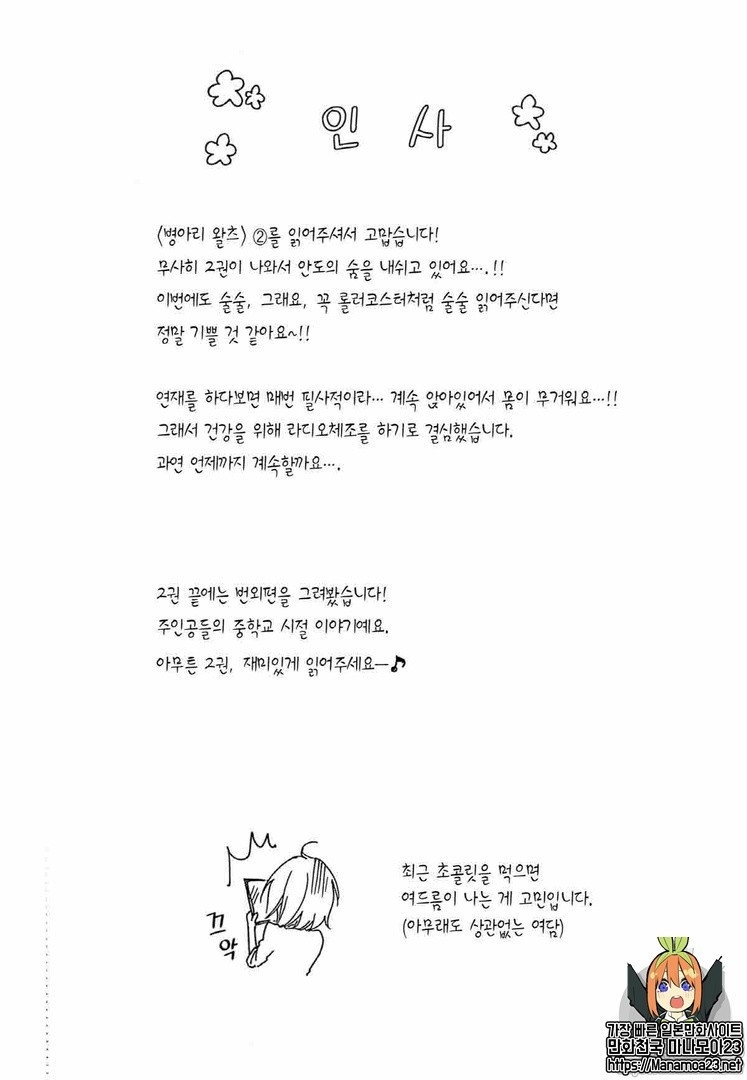 인사
〈병아리 왈츠〉 ②를 읽어주셔서 고맙습니다!
무사히 2권이 나와서 안도의 숨을 내쉬고 있어요….!!
이번에도 술술, 그래요, 꼭 롤러코스터처럼 술술 읽어주신다면
정말 기쁠 것 같아요~!!
연재를 하다보면 매번 필사적이라… 계속 앉아있어서 몸이 무거워요…!!
그래서 건강을 위해 라디오체조를 하기로 결심했습니다.
과연 언제까지 계속할까요….
2권 끝에는 번외편을 그려봤습니다!
주인공들의 중학교 시절 이야기예요.
아무튼 2권, 재미있게 읽어주세요—♪
끄악
최근 초콜릿을 먹으면
여드름이 나는 게 고민입니다.
(아무래도 상관없는 여담)
가장 빠른 일본만화사이트
만화천국 마나모아23
https://Manamoa23.net